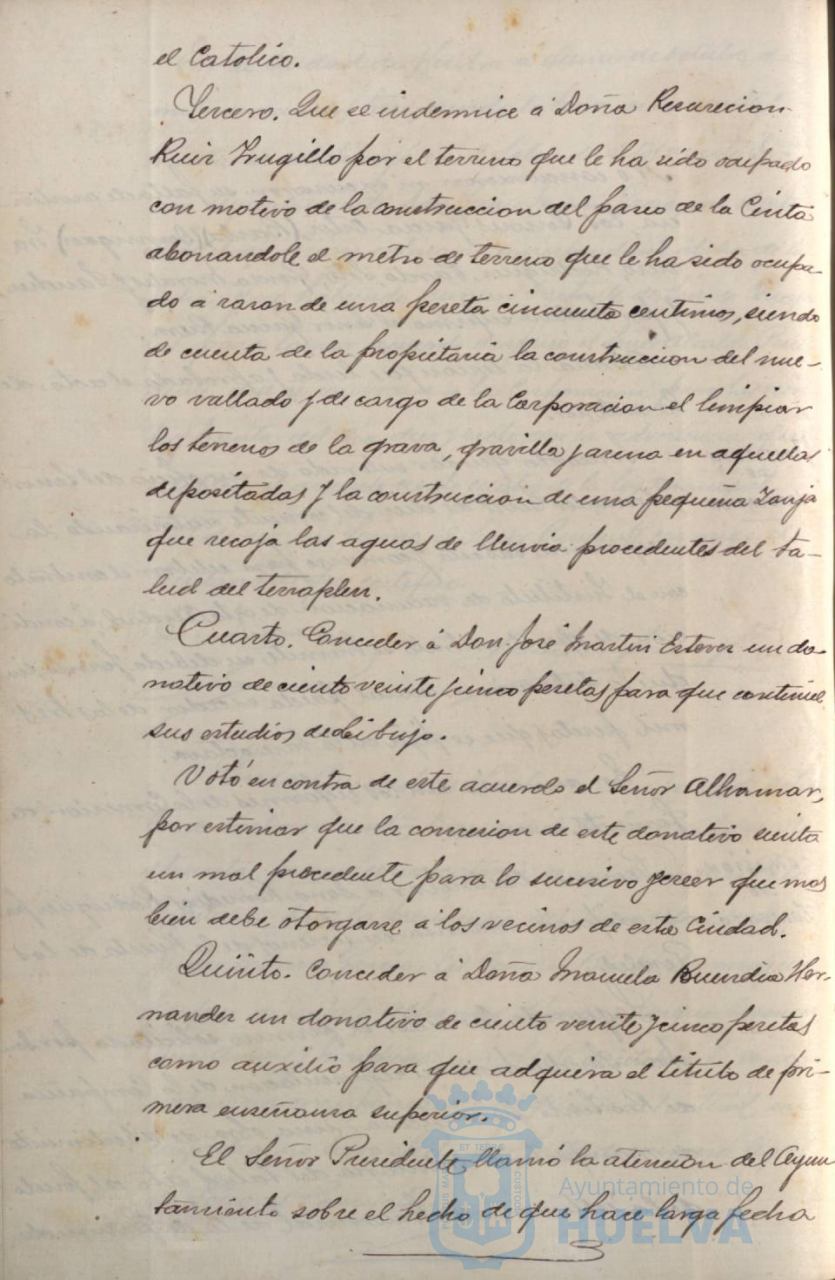 el Catolico.
Tercero. Que se indemnice á Doña Resureccion
Ruiz Trugillo por el terreno que le ha sido ocupado
con motivo de la construccion del paseo de la Cinta
abonandole el metro de terreno que le ha sido ocupa-
do á razon de una peseta cincuenta centimos, siendo
de cuenta de la propietaria la construccion del nue-
vo vallado y de cargo de la Corporacion el limpiar
los terrenos de la grava, gravilla y arena en aquellas
depositadas y la construccion de una pequeña zanja
que recoja las aguas de lluvia procedentes del ta-
lud del terraplen.
Cuarto. Conceder á Don José Martin Estevez un do-
nativo de ciento veinte y cinco pesetas para que continúe
sus estudios de dibujo.
Votó en contra de este acuerdo el Señor Alhamar,
por estimar que la concesion de este donativo sienta
un mal precedente para lo sucesivo y creer que mas
bien debe otorgarse á los vecinos de esta Ciudad.
Quinto. Conceder á Doña Manuela Buendia Her-
nandez un donativo de ciento veinte y cinco pesetas
como auxilio para que adquiera el titulo de pri-
mera enseñanza superior.
El Señor Presidente llamó la atencion del Ayun
tamiento sobre el hecho de que hace larga fecha
Ayuntamiento de
HUELVA